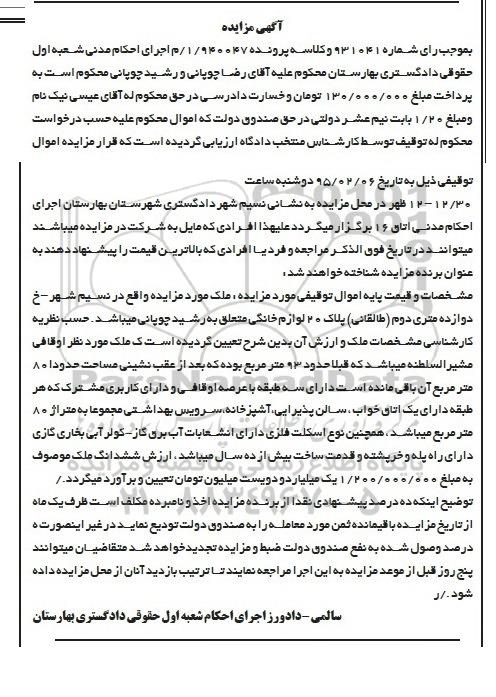 آگهی مزایده
بموجب رای شماره ۹۳۱۰۴۱ و کلاسه پرونده ۱/۹۴۰۰۴۷/م اجرای احکام مدنی شعبه اول
حقوقی دادگستری بهارستان محکوم علیه آقای رضا چوپانی و رشید چوپانی محکوم است به
پرداخت مبلغ ۱۳۰/۰۰۰/۰۰۰ تومان و خسارت دادرسی در حق محکوم له آقای عیسی نیک نام
ومبلغ ۱/۲۰ بابت نیم عشر دولتی در حق صندوق دولت که اموال محکوم علیه حسب درخواست
محکوم له توقیف توسط کارشناس منتخب دادگاه ارزیابی گردیده است که قرار مزایده اموال
توقیفی ذیل به تاریخ ۹۵/۰۲/۰۶ دوشنبه ساعت
۱۲/۳۰ – ۱۲ ظهر در محل مزایده به نشانی نسیم شهر دادگستری شهرستان بهارستان اجرای
احکام مدنی اتاق ۱۶ برگزار میگردد علیهذا افرادی که مایل به شرکت در مزایده میباشند
میتوانند در تاریخ فوق الذکر مراجعه و فرد یا افرادی که بالاترین قیمت را پیشنهاد دهند به
عنوان برنده مزایده شناخته خواهند شد:
مشخصات و قیمت پایه اموال توقیفی مورد مزایده: ملک مورد مزایده واقع در نسیم شهر –خ
دوازده متری دوم (طالقانی) پلاک ۲۰ لوازم خانگی متعلق به رشید چوپانی میباشد. حسب نظریه
کارشناسی مشخصات ملک و ارزش آن بدین شرح تعیین گردیده است ک ملک مورد نظر اوقافی
مشیرالسلطنه میباشد که قبلا حدود ۹۳ متر مربع بوده که بعد از عقب نشینی مساحت حدودا ۸۰
متر مربع آن باقی مانده است دارای سه طبقه با عرصه اوقافی و دارای کاربری مشترک که هر
طبقه دارای یک اتاق خواب، سالن پذیرایی، آشپزخانه، سرویس بهداشتی مجموعا به متراژ ۸۰
متر مربع میباشد، همچنین نوع اسکلت فلزی دارای انشعابات آب برق گاز-کولر آبی بخاری گازی
دارای راه پله و خرپشته و قدمت ساخت بیش از ده سال میباشد، ارزش ششدانگ ملک موصوف
به مبلغ ۱/۲۰۰/۰۰۰/۰۰۰ یک میلیارد و دویست میلیون تومان تعیین و برآورد میگردد./
توضیح اینکه ده درصد پیشنهادی نقدا از برنده مزایده اخذ و نامبرده مکلف است ظرف یک ماه
از تاریخ مزایده باقیمانده ثمن مورد معامله را به صندوق دولت تودیع نماید در غیر اینصورت ه
درصد وصول شده به نفع صندوق دولت ضبط و مزایده تجدید خواهد شد متقاضیان میتوانند
پنج روز قبل از موعد مزایده به این اجرا مراجعه نمایند تا ترتیب بازدید آنان از محل مزایده داده
شود./ر
سالمی –دادورز اجرای احکام شعبه اول حقوقی دادگستری بهارستان